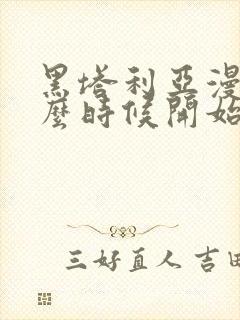 黑塔利亞漫
麼時候開始
三好直人 吉田